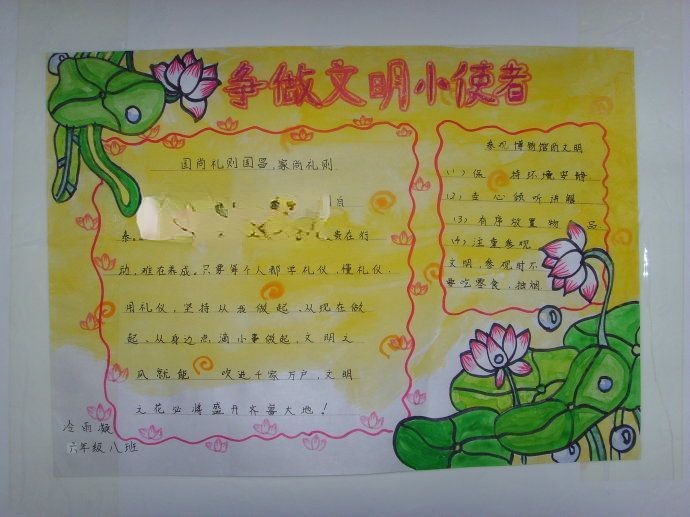 争做文明小使者
国尚礼则国昌,家尚礼则
贵在行
动,难在养成。只要每个人都学礼仪,懂礼仪,
用礼仪,坚持从我做起、从现在做
起、从身边点滴小事做起,文明之
风就能 吹进千家万户,文明
之花必将盛开齐鲁大地!
参观博物馆的文明
(1)保 持环境安静
(2)专心倾听讲解
(3)有序放置物 品
(4)注重参观
文明,参观时不
要吃零食、抽烟
冷雨凝
六年级八班